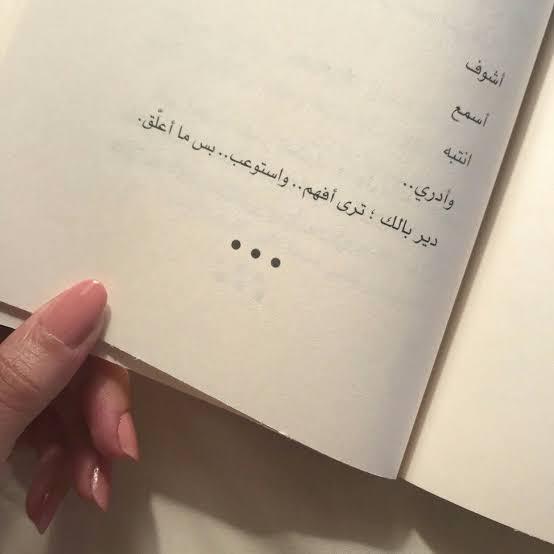 أشوف
أسمع
انتبه
وأدري..
دير بالك ؛ ترى أفهم.. واستوعب.. بس ما أعلّق.